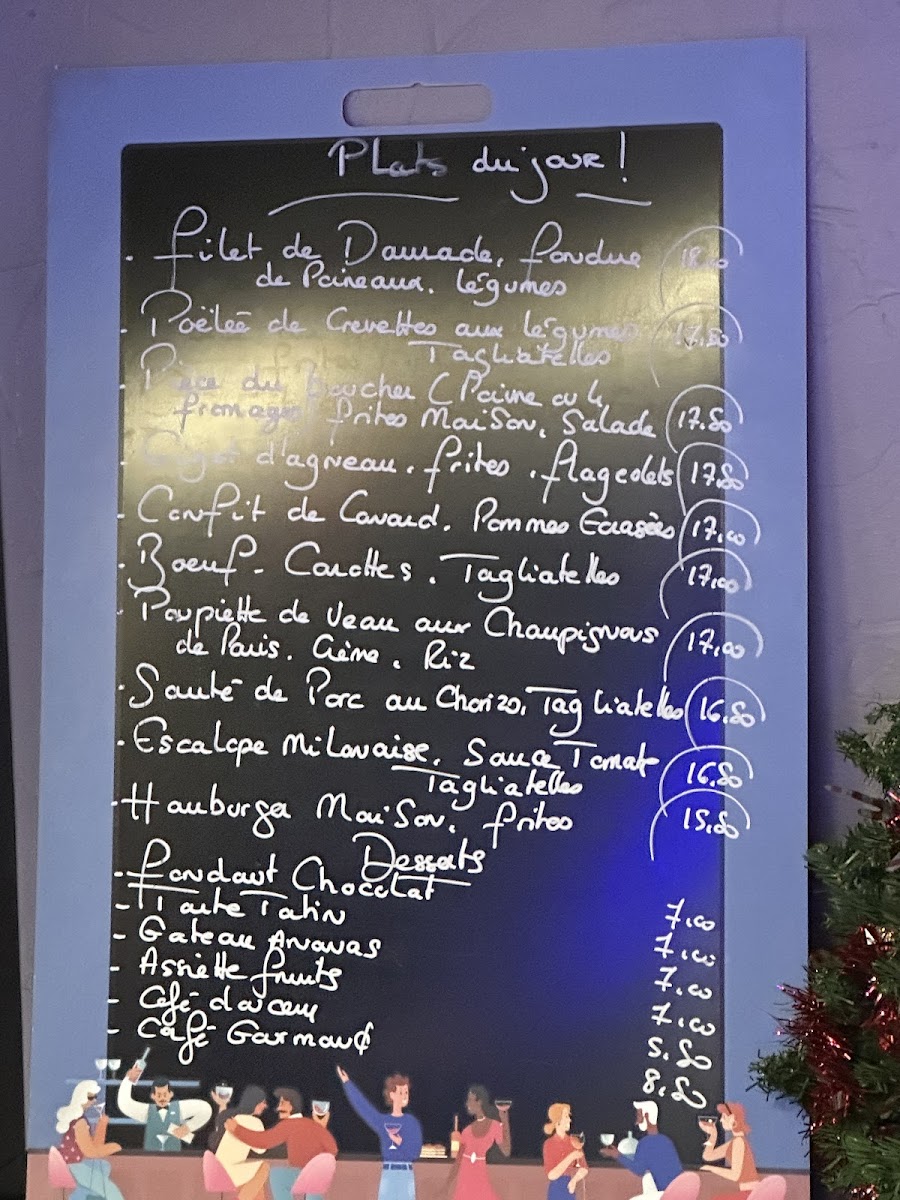 Plats du jour !
- filet de Daurade, fondue 18.00
de Poireaux. légumes
- Poëleé de Crevettes aux légumes 17.80
Tagliatelles
- Pièce du boucher ( Poivre ou 4
fromages) frites Maison, Salade 17.80
- Gigot d'agneau. frites. flageolets 17.80
- Confit de Canard. Pommes Ecrasées 17.00
- Boeuf - Carottes. Tagliatelles 17.00
- Paupiette de Veau aux Champignons
de Paris. Crème. Riz 17.00
- Sauté de Porc au Chorizo, Tagliatelles 16.80
- Escalope Milanaise. Sauce Tomate
Tagliatelles 16.80
- Hamburger Maison. frites 15.80
Desserts
- Fondant Chocolat 7.00
- Tarte Tatin 7.00
- Gateau Ananas 7.00
- Assiette fruits 7.00
- Café douceur 5.80
- Café Gourmand 8.80